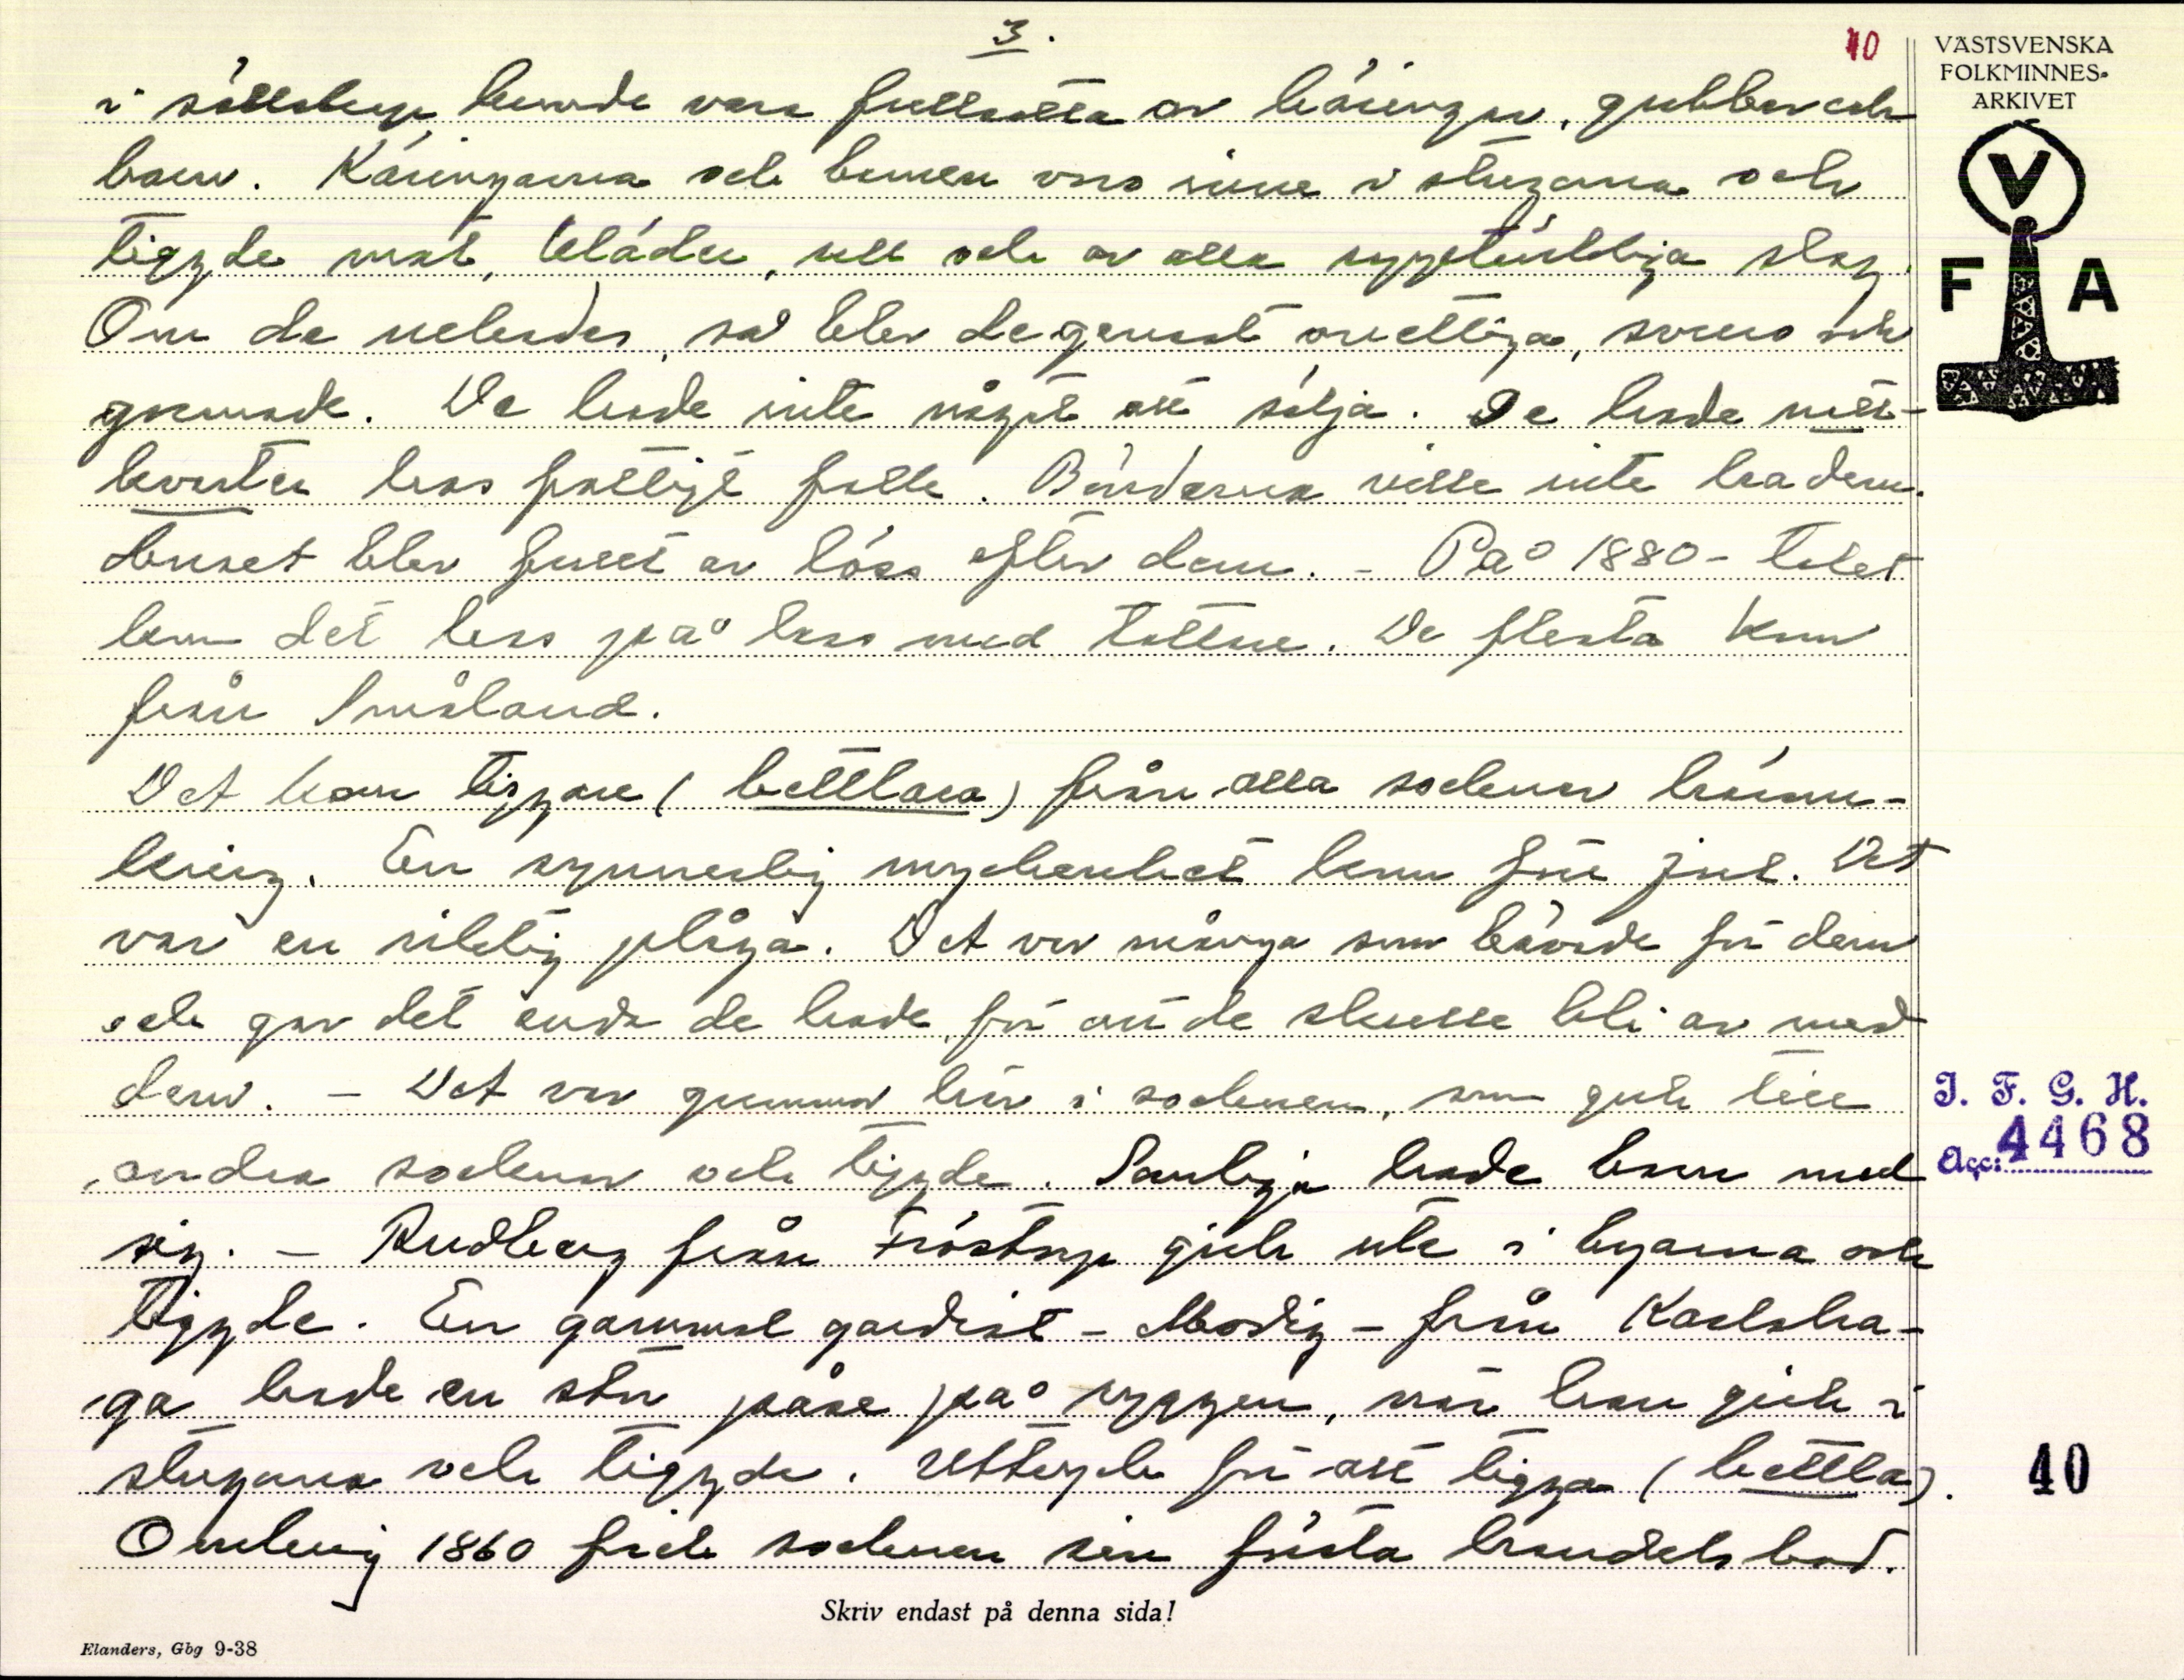 3.
40
VÄSTSVENSKA
FOLKMINNES-
ARKIVET
V
F A
i sällskap kunde vara fullsatta av käringar, gubbar och
barn. Käringarna och barnen voro inne i stugorna och
tiggde mat, kläder, ull och av alla upptänkliga slag.
Om de nekades, så blev de genast ovettiga, svuro och
gormade. De hade inte något att sälja. De hade natt-
kvarter hos fattigt folk. Bönderna ville inte ha dem.
Huset blev fullt av löss efter dem. - På 1880-talet
kom det lass på lass med tattare. De flesta kom
från Småland.
Det kom tiggare (bettlara) från alla socknar häromm-
kring. En synnerlig myckenhet kom före jul. Det
var en riktig plåga. Det var många som bävade för dem
och gav det enda de hade, för att de skulle bli av med
dem. - Det var gummor här i socknen, som gick till
andra socknar och tiggde. Somliga hade barn med
sig. - Rudberg från Fröstorp gick ute i byarna och
tiggde. En gammal gardist - Modig - från Karlsha-
ga hade en stor påse på ryggen, när han gick i
stugorna och tiggde. Uttryck för att tigga (bettla).
Omkring 1860 fick socknen sin första handelsbod.
I. F. G. H.
Acc: 4468
40
Skriv endast på denna sida!
Elanders, Gbg 9-38